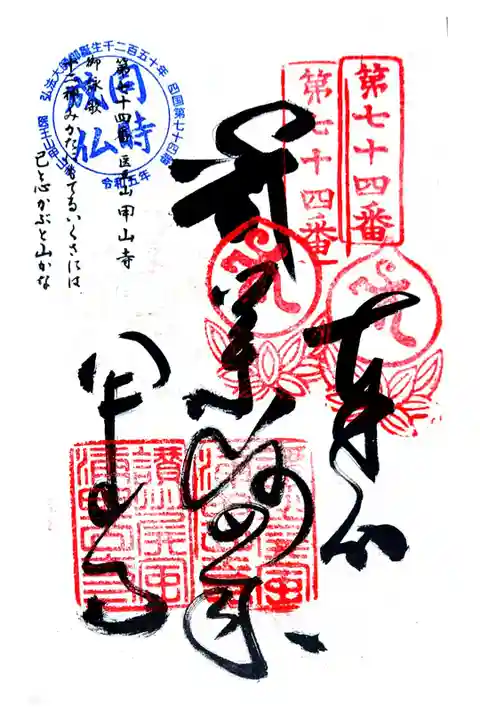 第七十四番
第七十四番
奉納
薬師如来
甲山寺
弘法大師御誕生千二百五十年
四国第七十四番
医王山甲山寺
令和五年
同時
成仏
第七十四番 医王山 甲山寺
御詠歌
十二神みかたにもてるいくさには
己と心かぶと山かな